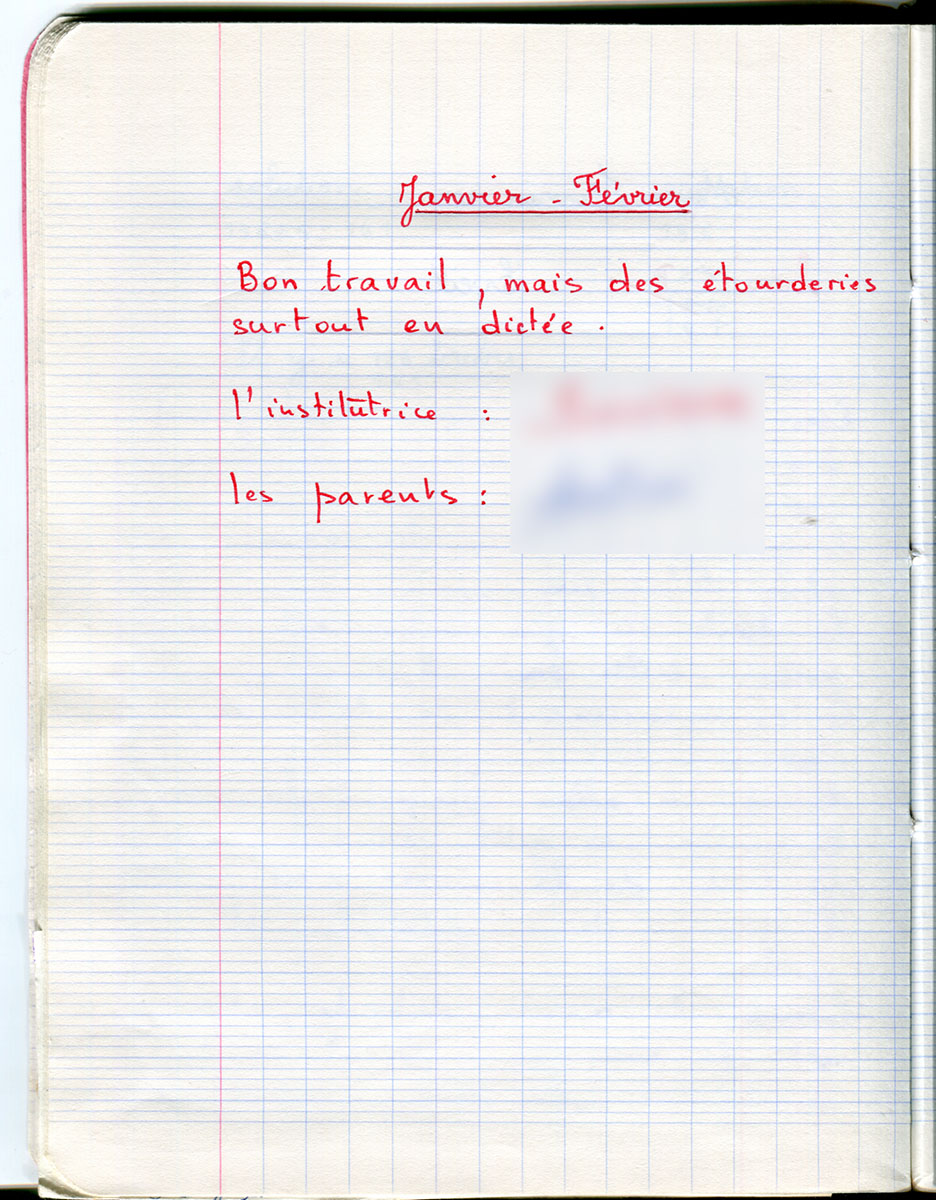 Janvier - Février
Bon travail, mais des étourderies
surtout en dictée.
l'institutrice :
les parents :